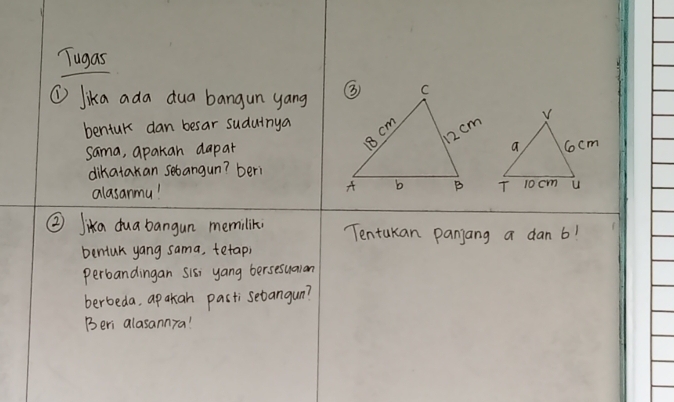 Tugas
① Jika ada dua bangun yang
bentuk dan besar sudutnya
sama, apakah dapat
dikatakan sebangun? beri
alasanmu!
② Jika dua bangun memiliki
bentuk yang sama, tetapi
perbandingan sisi yang bersesuaian
berbeda, apakah pasti sebangun?
Beri alasannya!
③
C
18 cm
12 cm
A b B
V
a
6 cm
T 10 cm U
Tentukan panjang a dan b!